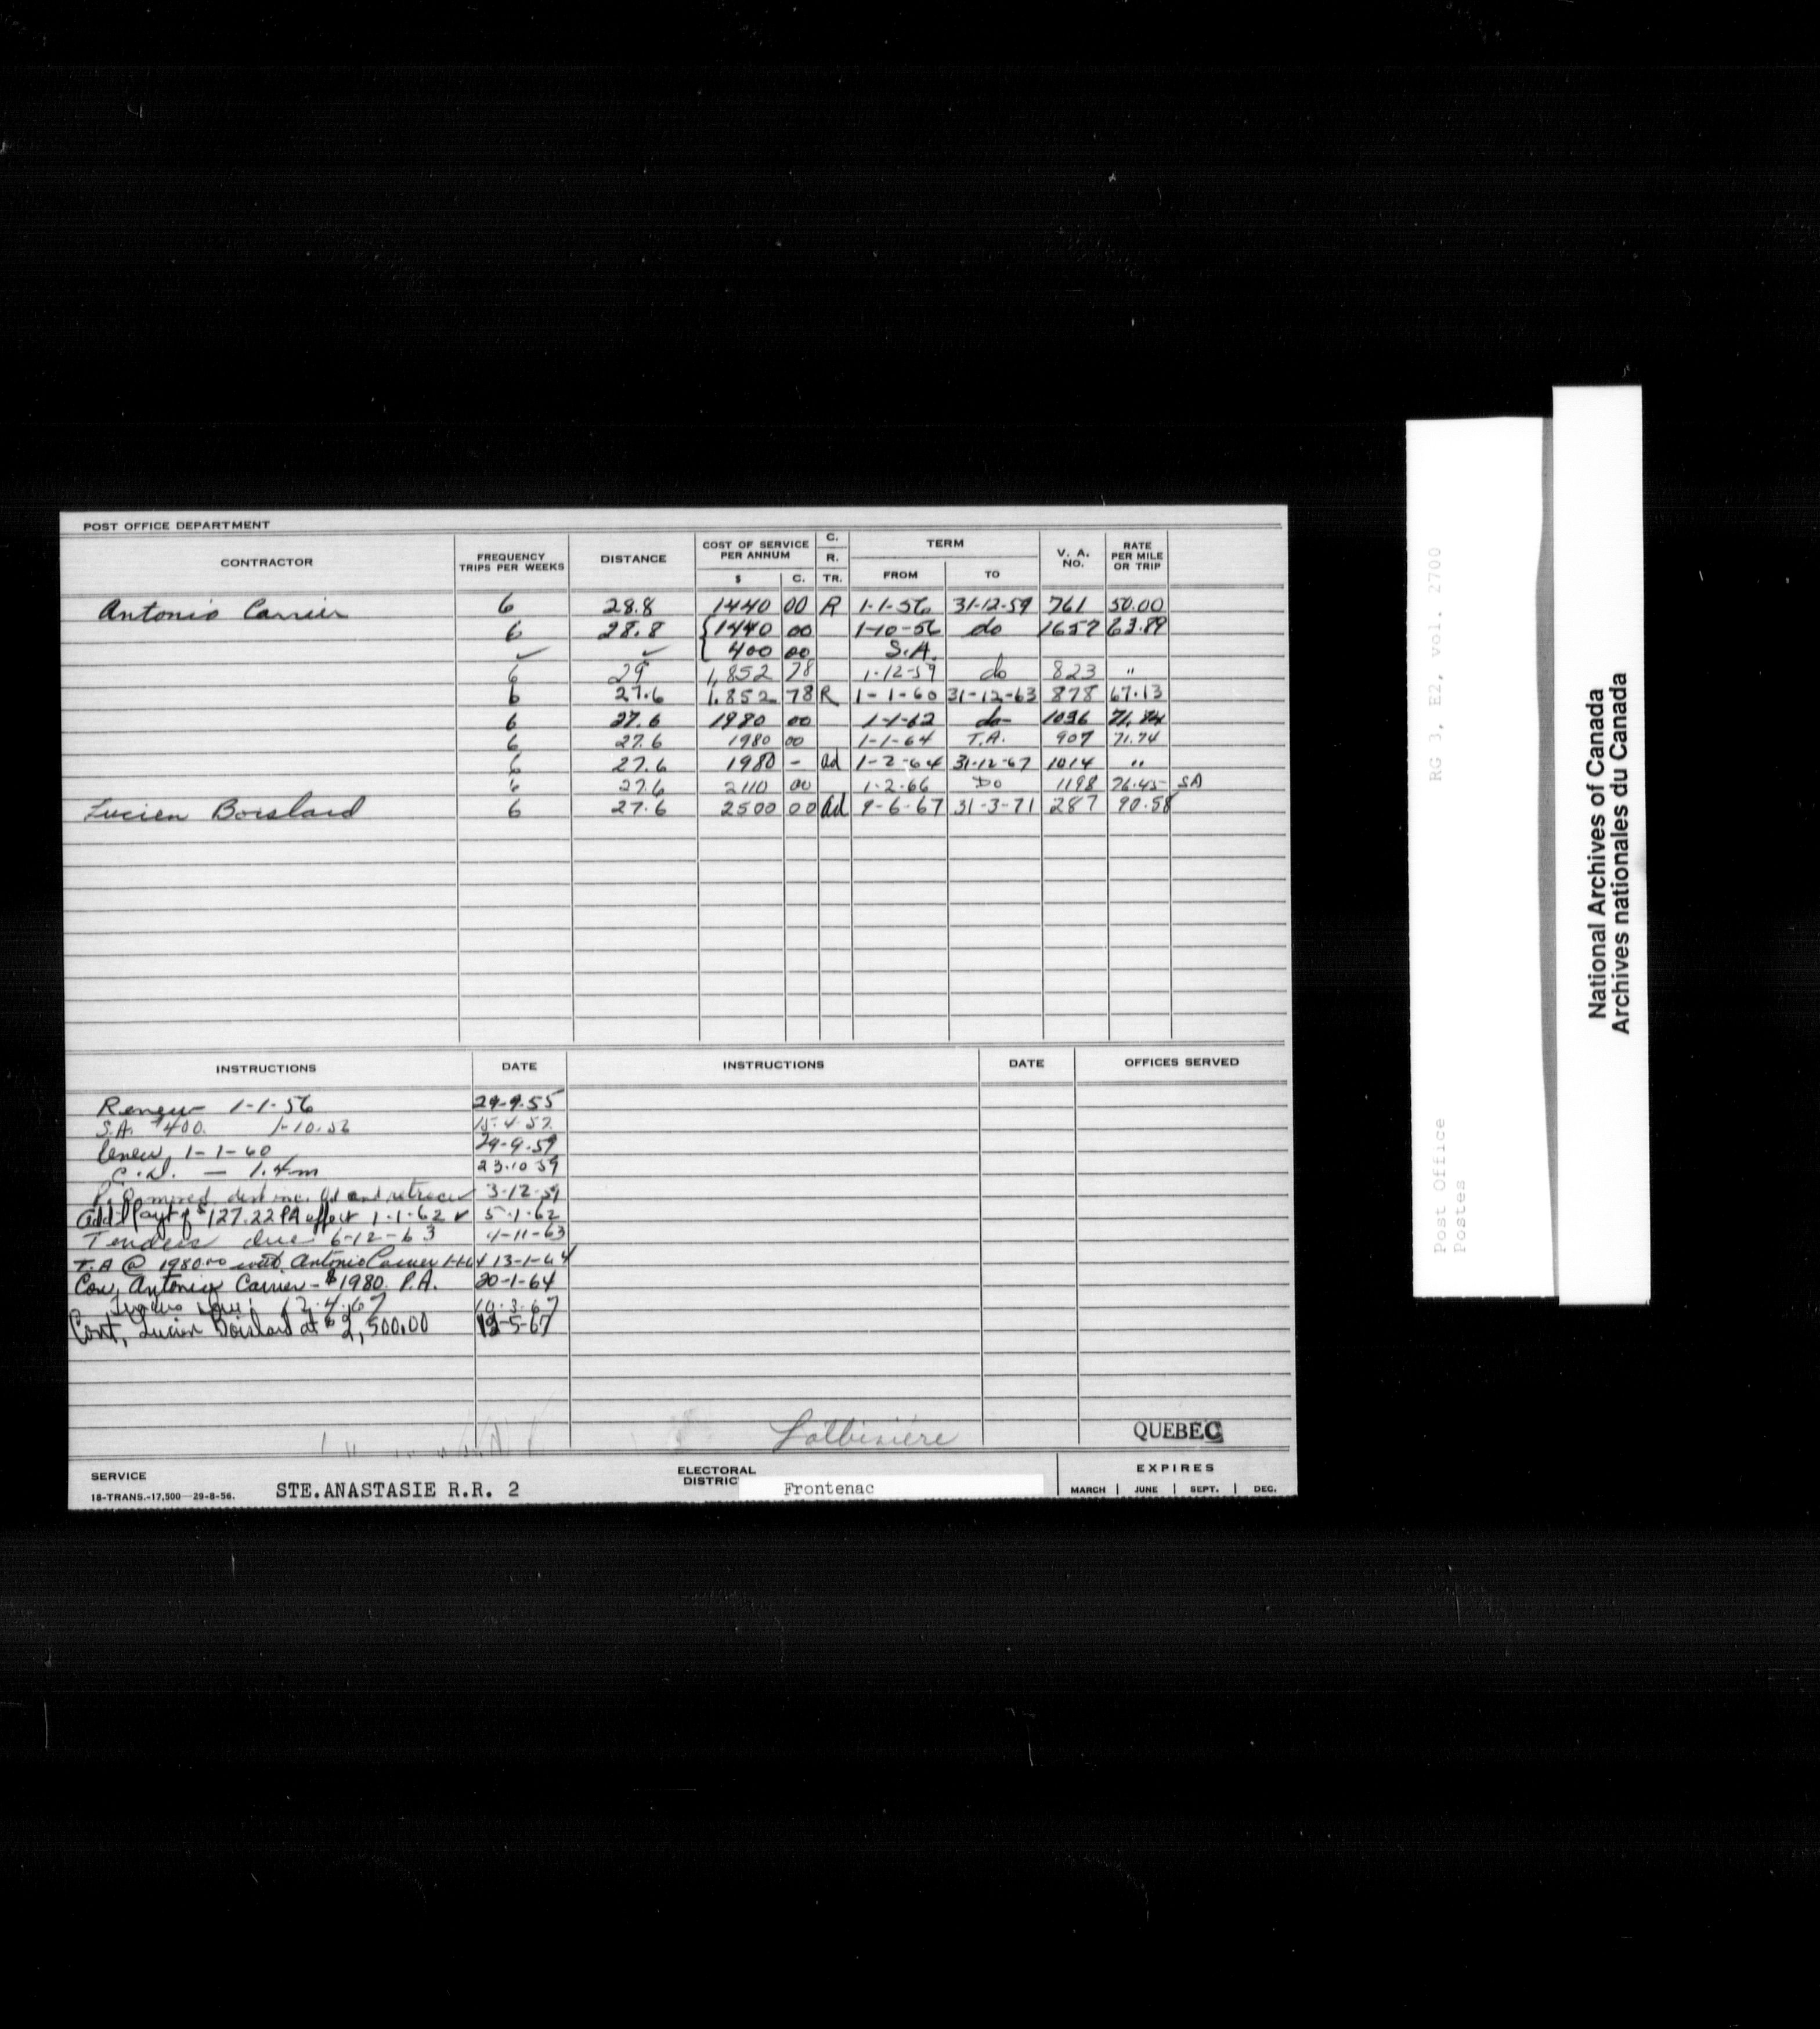 POST OFFICE DEPARTMENT
CONTRACTOR FREQUENCY TRIPS PER WEEKS DISTANCE COST OF SERVICE PER ANNUM $ C. C. R. TR. TERM FROM TO V. A. NO. RATE PER MILE OR TRIP
Antonio Carrier 6 28.8 1440 00 R 1-1-56 31-12-59 761 50.00
6 28.8 1440 00 1-10-56 do 1657 63.89
✓ ✓ 400 00 S.A.
6 29 1,852 78 1-12-59 do 823 "
6 27.6 1,852 78 R 1-1-60 31-12-63 878 67.13
6 27.6 1980 00 1-1-62 do 1036 71.74
6 27.6 1980 00 1-1-64 T.A. 907 71.74
6 27.6 1980 - ad 1-2-64 31-12-67 1014 "
6 27.6 2110 00 1-2-66 Do 1198 76.45 SA
Lucien Boislard 6 27.6 2500 00 ad 9-6-67 31-3-71 287 90.58
INSTRUCTIONS DATE INSTRUCTIONS DATE OFFICES SERVED
Renew 1-1-56 29-9-55
S.A. $400. 1-10-56 15-4-57
Renew 1-1-60 29-9-59
- 1.4 m 23-10-59
P.O. moved, dist inc. and retrace 3-12-59
Add'l Payt of $127.22 PA effect 1-1-62 ✓ 5-1-62
Tenders due 6-12-63 4-11-63
T.A @ 1980.00 with Antonio Carrier 1-1-64 13-1-64
Con, Antonio Carrier - $1980. P.A. 20-1-64
12-4-67 10-3-67
Cont, Lucien Boislard at $2,500.00 12-5-67
Lotbinière
QUEBEC
SERVICE STE.ANASTASIE R.R. 2 ELECTORAL DISTRIC Frontenac EXPIRES
18-TRANS.-17,500—29-8-56. MARCH JUNE SEPT. DEC.
RG 3, E2, vol. 2700
Post Office
Postes
National Archives of Canada
Archives nationales du Canada